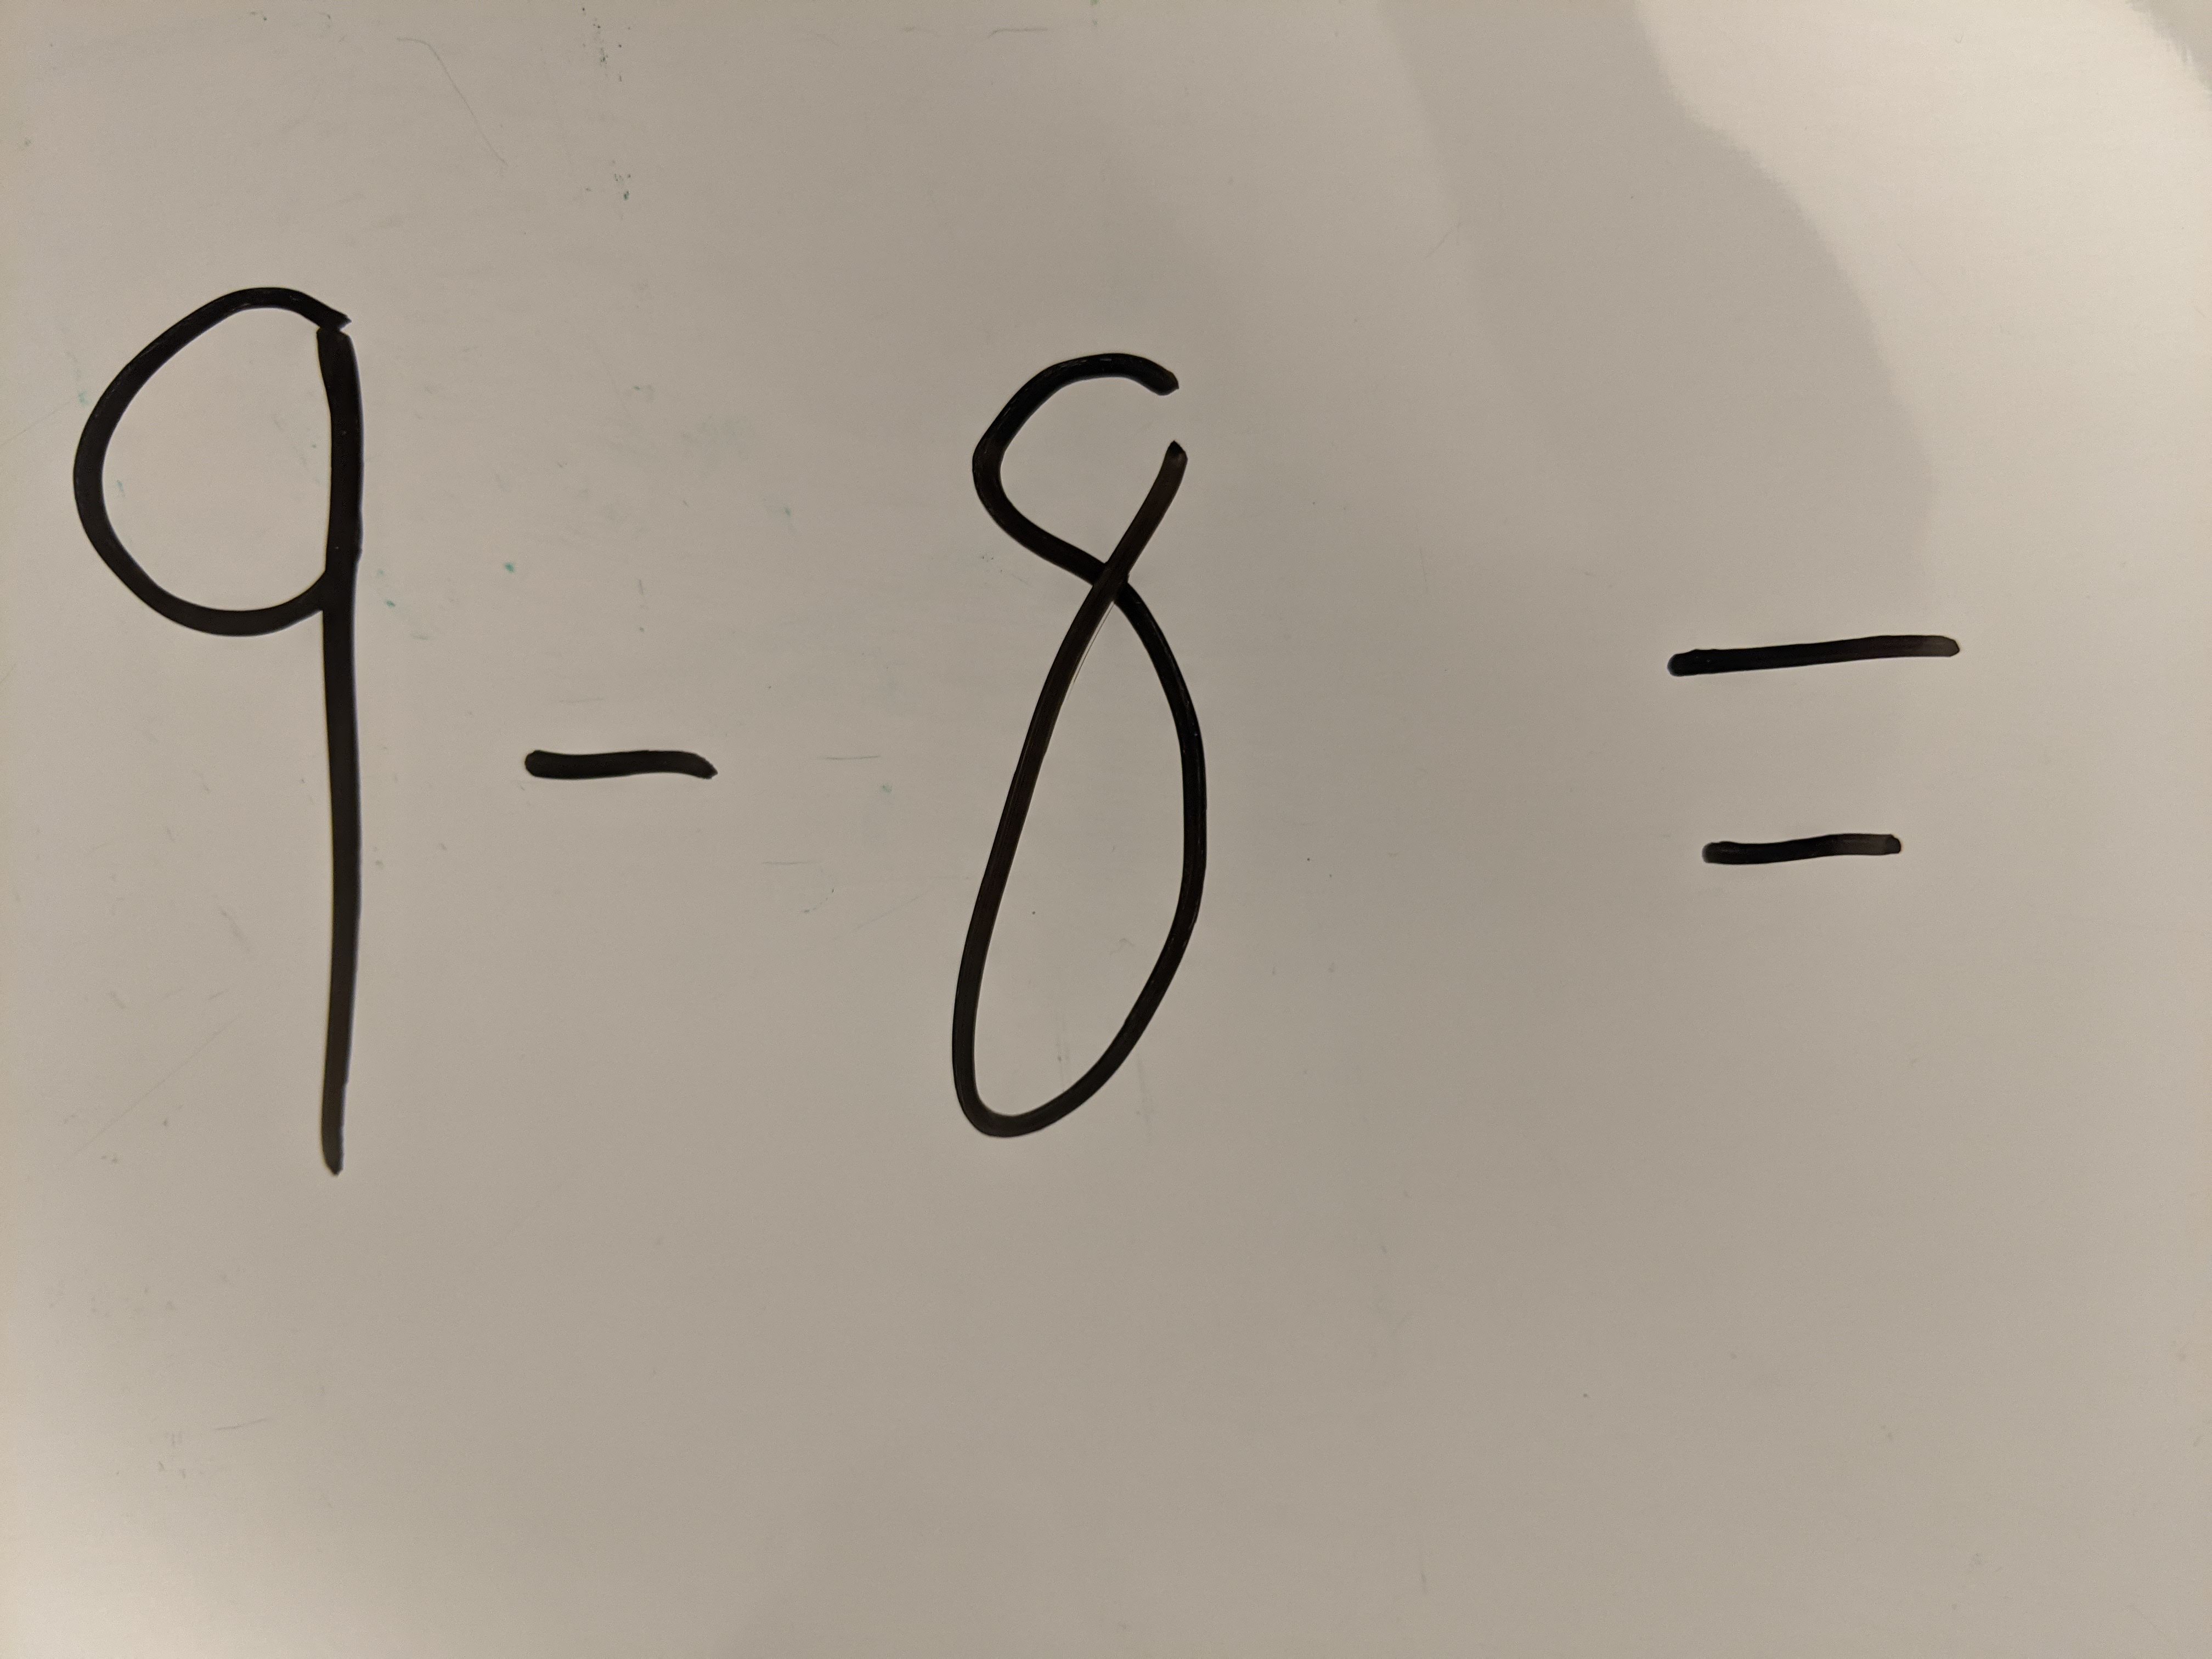 9 - 8 =